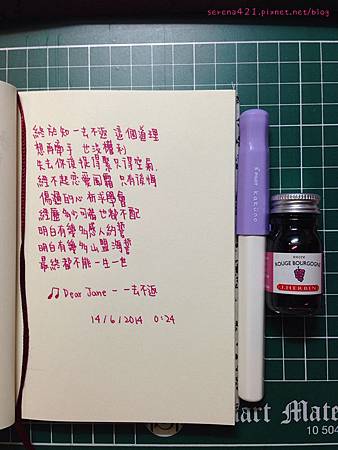 serena421.pixnet.net/blog
終於知 一去不返 這個道理
想再牽手 也沒權利
失去你後 換得緊只得空氣
經不起戀愛風霜 只有後悔
傷過的心 術手學會
經歷多少 可當也捱不配
明白有幾多感人約誓
明白有幾多山盟海誓
最終都不能一生一世
♫ Dear Jane - 一去不返
14/6/2014 0:24
PILOT kakuno
ENCRE
ROUGE BOURGOGNE
J. HERBIN
mart Mate
10 504